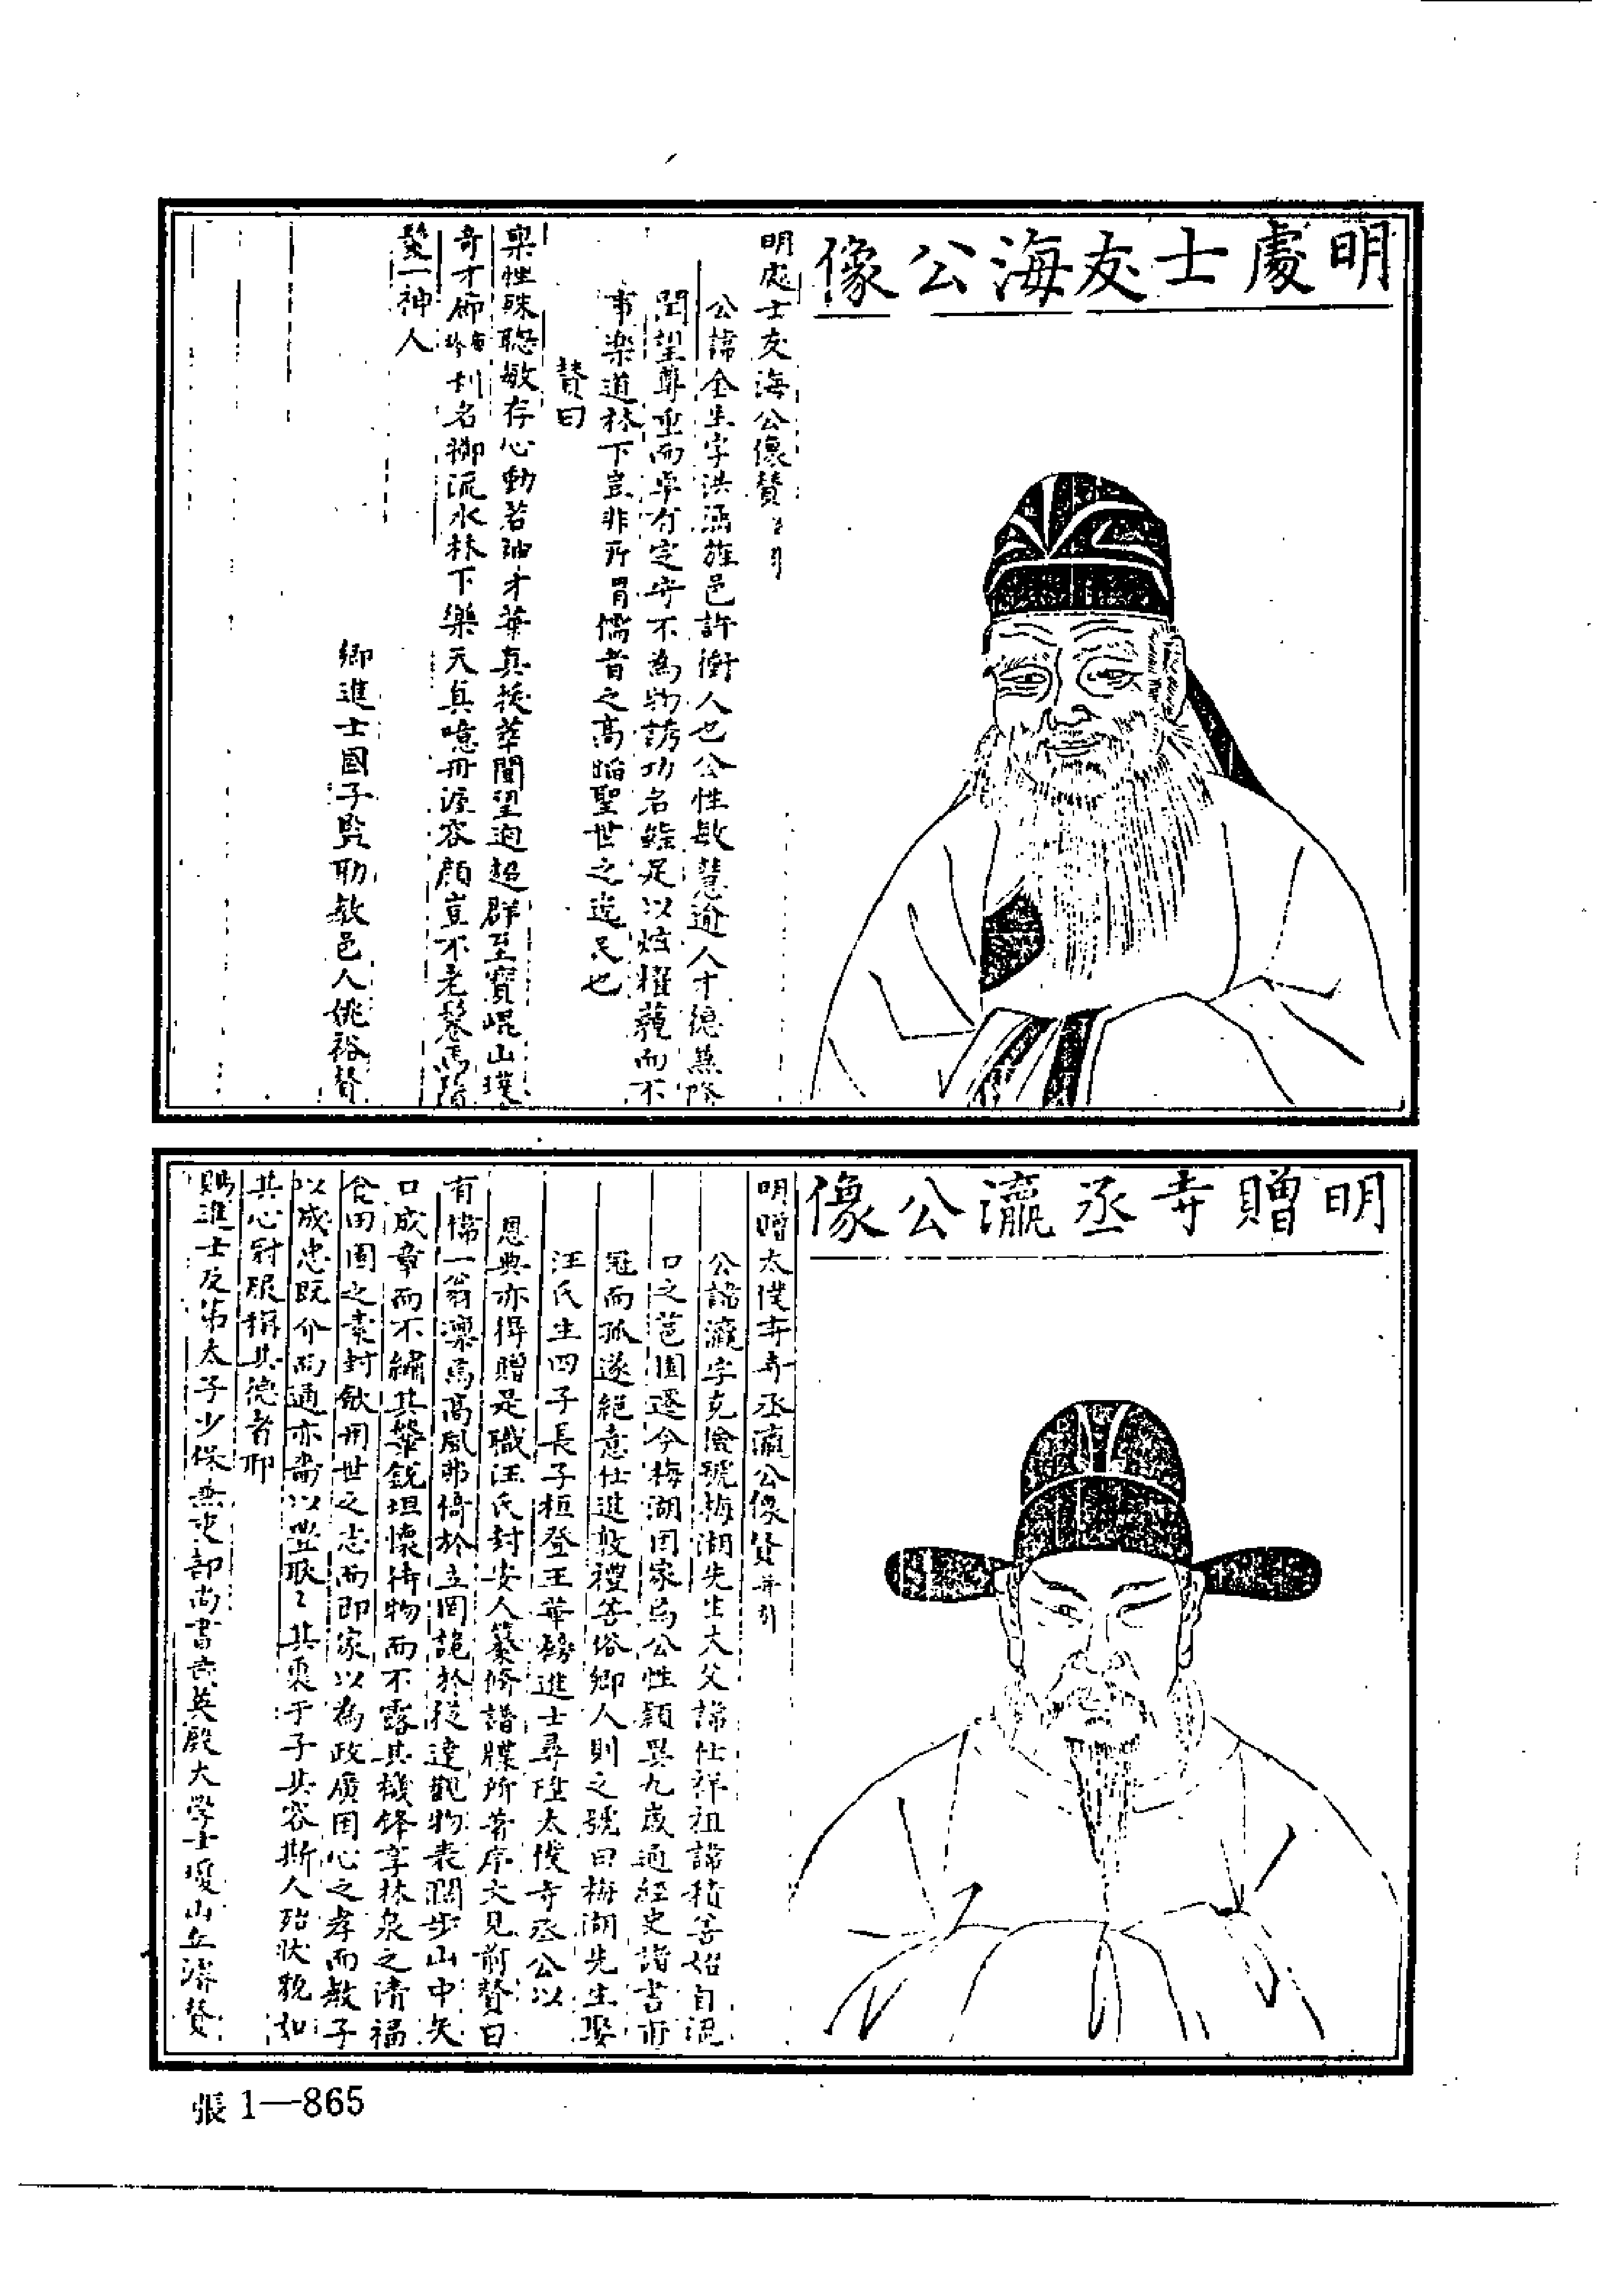 明處士友海公像
明處士友海公像贊并引
公諱全生字洪涵旌邑許衝人也公性敏慧逾人才德兼隆
聞望尊重而卓有定守不為物誘功名雖足以炫耀蔑而不
事樂道林下豈非所謂儒者之高蹈聖世之逸民也
贊曰
稟性殊聰敏存心動若神才華真拔萃聞望迥超群至寶崐山璞
奇才廊廟利名鄉流水林下樂天真噫丹渥容顏豈不老鬖焉
鬢一神人
鄉進士國子監助教邑人姚裕贊
明贈寺丞瀛公像
明贈太僕寺寺丞瀛公像贊并引
公諱瀛字克 號梅湖先生大父諱仕祥祖諱積善始自泥
口之芭園遷今梅湖田家焉公性穎異九歲通經史諸書甫
冠而孤遂絕意仕進敦禮善俗鄉人則之號曰梅湖先生娶
汪氏生四子長子桓登王華榜進士尋陞太僕寺丞公以
恩典亦得贈是職汪氏封安人纂修譜牒所著序文見前贊曰
有儒一翁凜焉高風弗倚於立罔詭於從達觀物表闊步山中矢
口成章而不繡其 銳坦懷待物而不露其機鋒享林泉之清福
食田園之素封飲用世之志而即家以為政廣因心之孝而教子
以成忠既介而通亦嗇以豐 其 于子其容斯人 狀貌如
其心冠服稱其德者耶
賜進士及第太子少保兼吏部尚書武英殿大學士瓊山丘濬贊
張1—865